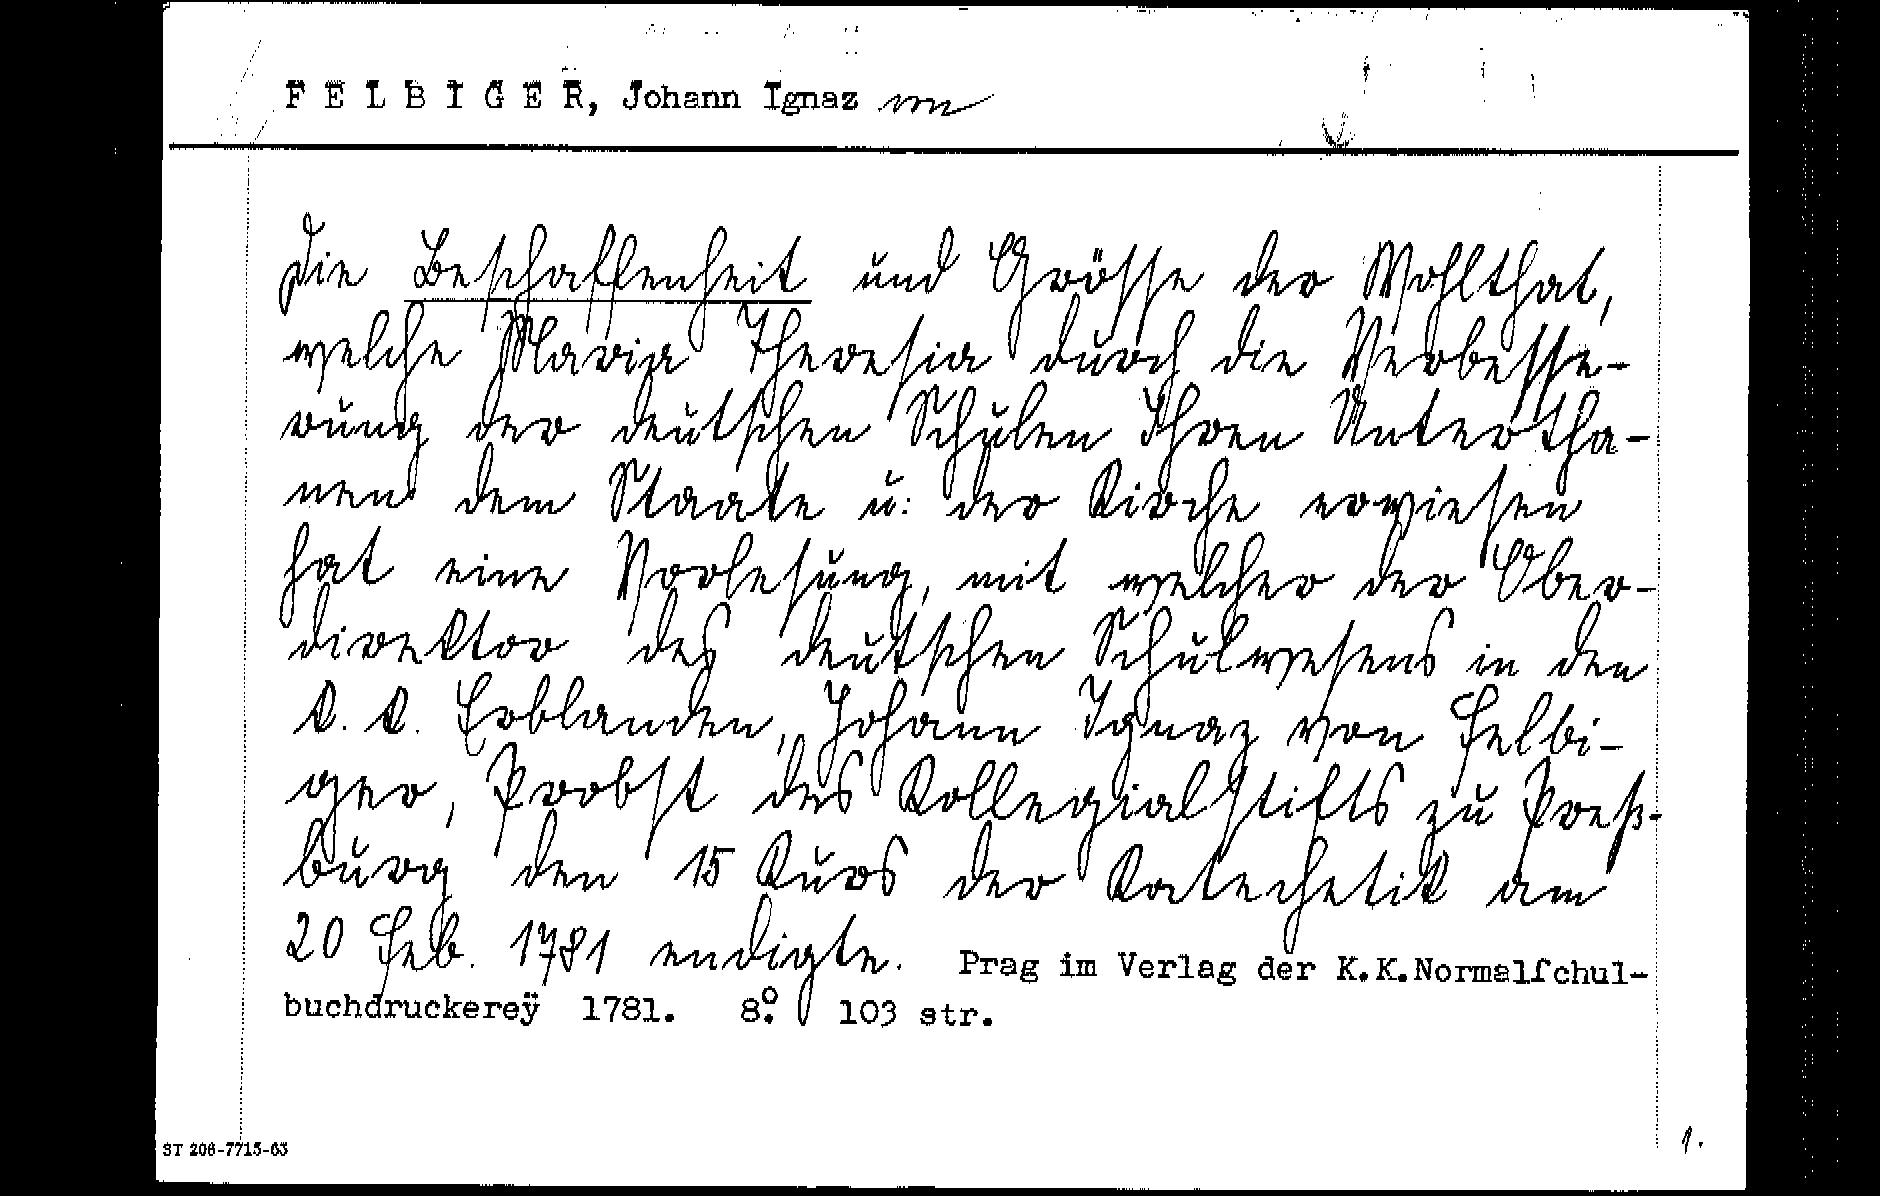 F E L B I G E R, Johann Ignaz von
Die Beschaffenheit und Grösse der Wohlthat,
welche Maria Theresia durch die Verbesse-
rung der deutschen Schulen Ihren Untertha-
nen dem Staate u: der Kirche erwiesen
hat eine Vorlesung, mit welcher der Ober-
direktor des deutschen Schulwesens in den
k. k. Erblanden, Johann Ignaz von Felbi-
ger, Probst des Kollegialstifts zu Preß-
burg den 15 Kurs der Katechetik am
20 Feb. 1781 endigte. Prag im Verlag der K.K.Normalſchul-
buchdruckereÿ 1781. 8º. 103 str.
ST 206-7715-63
1.